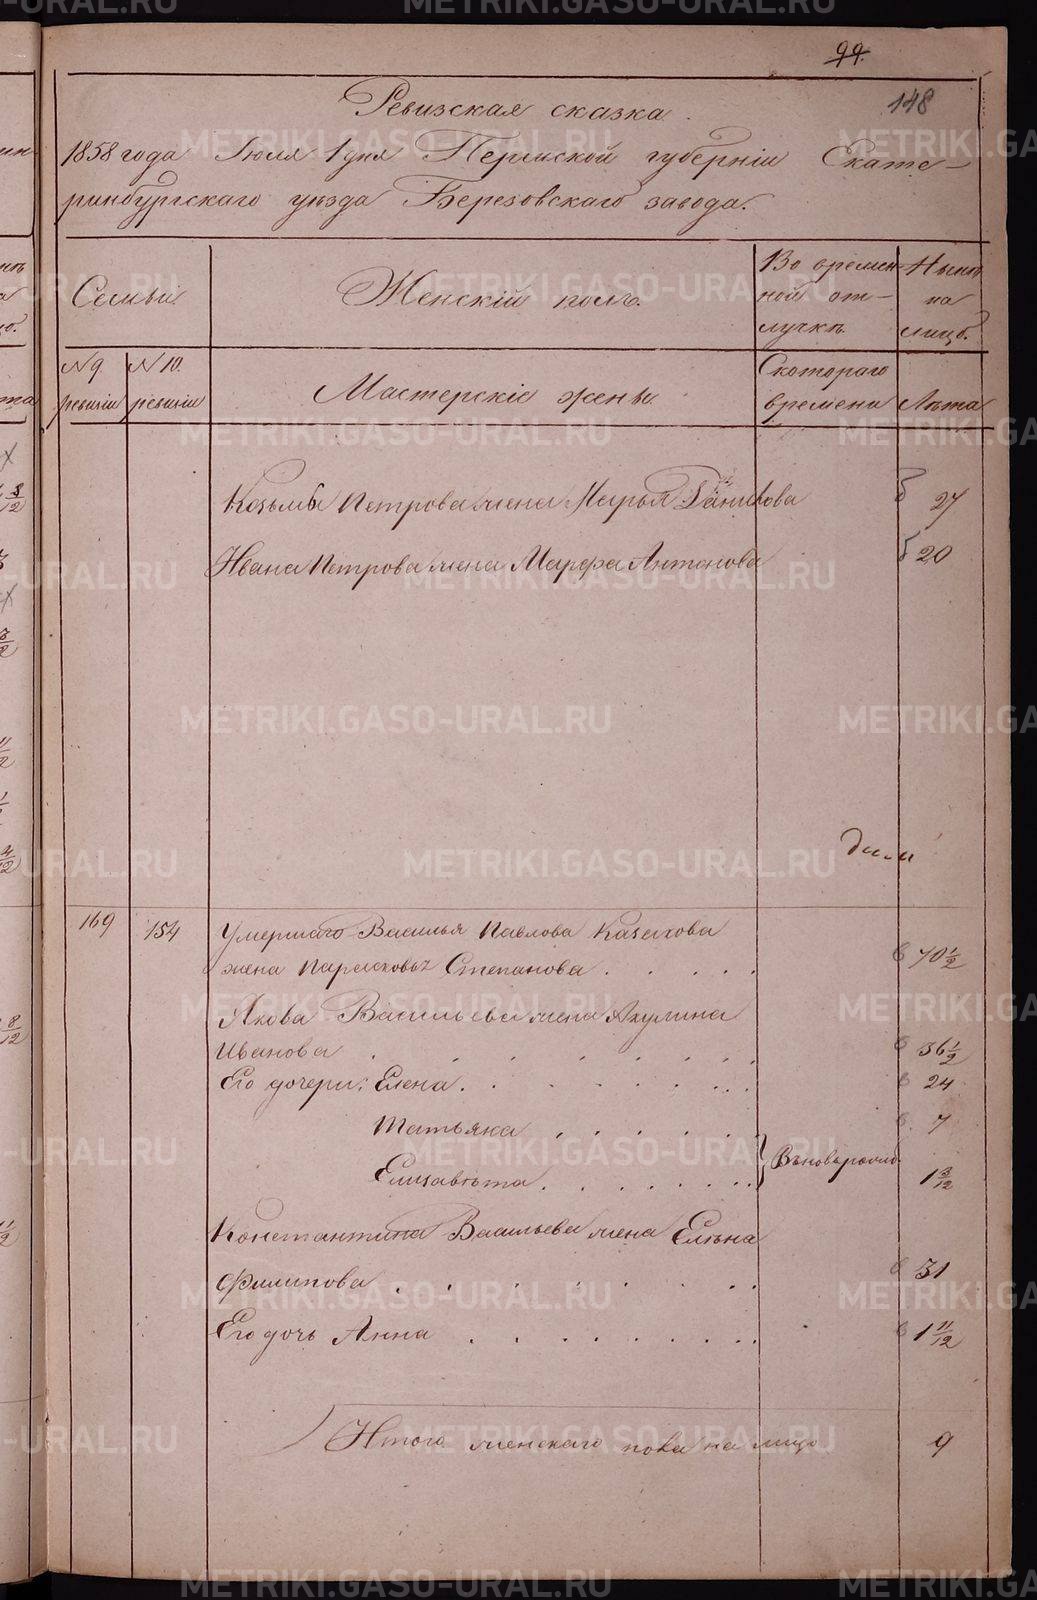 99.
148
Ревизская сказка.
1858 года Июля 1 дня Пермской губерніи Екате-
ринбургскаго уѣзда Березовскаго завода.
Семьи
Женскій полъ.
Во времен-
ной от-
лучкѣ
Нынѣ
на
лицо.
№ 9.
ревизіи
№ 10.
ревизіи
Мастерскіе жены.
Скотораго
времени
Лѣта
Козьмы Петрова жена Марья Данилова 27
Ивана Петрова жена Марфа Антонова 20
169 154 Умершаго Василья Павлова Казакова
жена Парасковья Степанова . . . . . 70 1/2
Якова Васильева жена Акулина
Иванова . . . . . . . 36 1/2
Его дочери: Елена . . . . . . . 24
Татьяна . . . . . . 7
Елизавѣта . . . . . . . . Вѣновьрожд 1 3/12
Константина Васильева жена Елѣна
Филипова . . . . . . . 31
Его дочь Анна . . . . . . . . . 1 11/12
Итого женскаго пола на лицо 9
METRIKI.GASO-URAL.RU